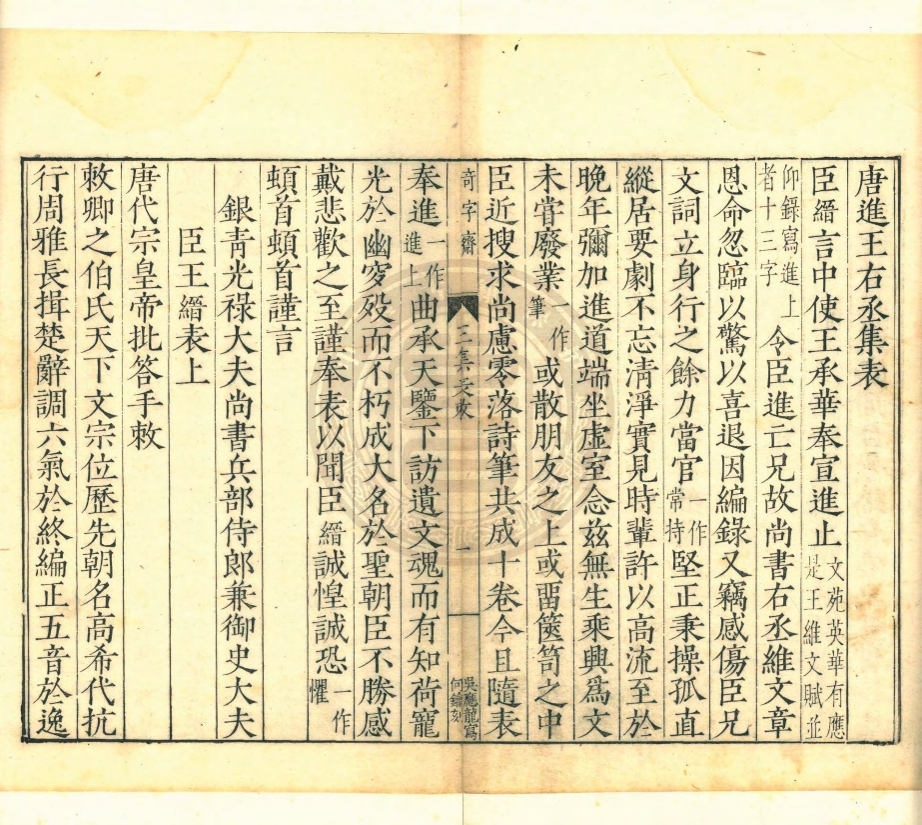 唐進王右丞集表
臣縉言中使王承華奉宣進止文苑英華有應是王維文賦並
仰錄寫進上者十三字令臣進亡兄故尚書右丞維文章
恩命忽臨以驚以喜退因編錄又竊感傷臣兄
文詞立身行之餘力當官一作常持堅正秉操孤直
縱居要劇不忘清淨實見時輩許以高流至於
晚年彌加進道端坐虛室念茲無生乘興為文
未嘗廢業一作筆或散朋友之上或畱篋笥之中
臣近搜求尚慮零落詩筆共成十卷今且隨表
奇字齋
王集表敕
一
吳應龍寫
何鑰刻
奉進一作進上曲承天鑒下訪遺文魂而有知荷寵
光於幽穸殁而不朽成大名於聖朝臣不勝感
戴悲歡之至謹奉表以聞臣縉誠惶誠恐一作懼
頓首頓首謹言
銀青光祿大夫尚書兵部侍郎兼御史大夫
臣王縉表上
唐代宗皇帝批答手敕
敕卿之伯氏天下文宗位歷先朝名高希代抗
行周雅長揖楚辭調六氣於終編正五音於逸